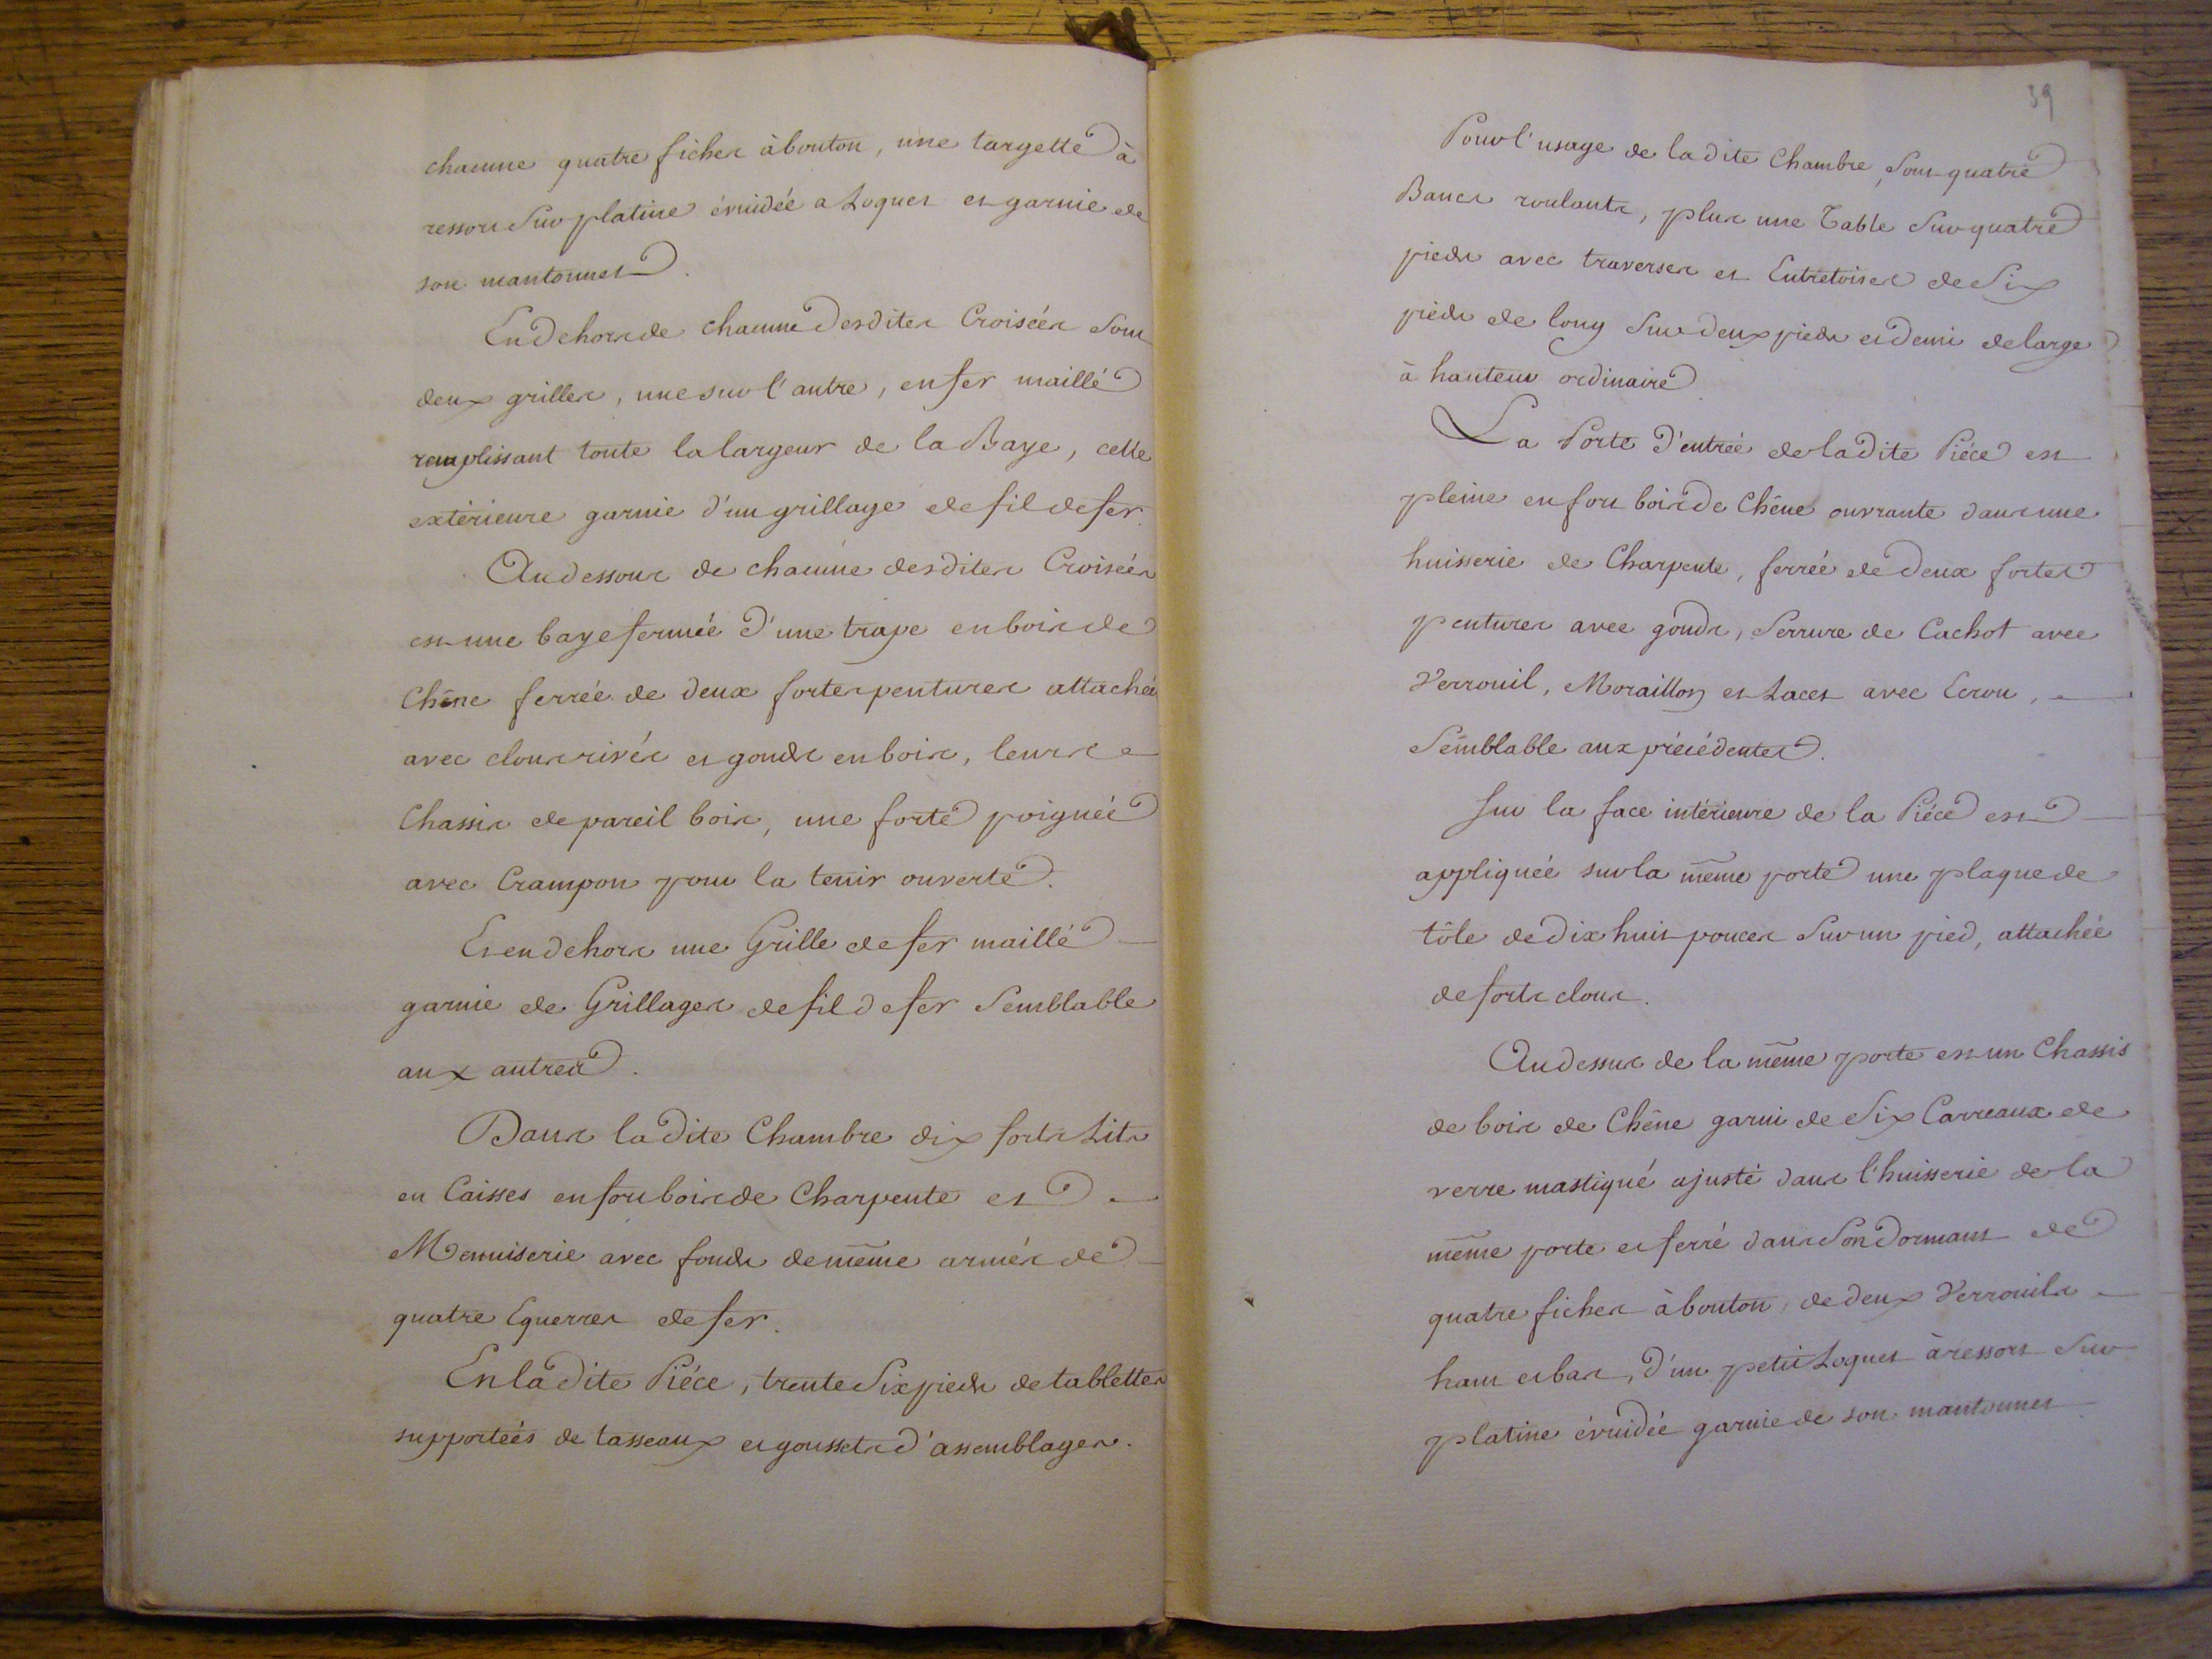 chacune quatre fiches à bouton, une targette à
ressort Sur platine évuidée a Loquet et garnie de
son mantonnet.
En dehors de chacune desdites Croisées Sont
deux grilles, une sur l'autre, en fer maillé
remplissant toute la largeur de la Baye, celle
extérieure garnie d'un grillage de fil de fer.
Au dessous de chacune desdites Croisées
est une baye fermée d'une trape en bois de
Chêne ferrée de deux fortes pentures attachées
avec clous rivés et gonds en bois, leurs
Chassis de pareil bois, une forte poignée
avec Crampon pour la tenir ouverte.
Et en dehors une Grille de fer maillé
garnie de Grillages de fil de fer Semblable
aux autres.
Dans ladite Chambre dix forts Lits
en Caisses en fort bois de Charpente et
Menuiserie avec fonds de même armés de
quatre Equerres de fer.
En ladite Piéce, trente Six pieds de tablettes
supportées de tasseaux et goussets d'assemblages.
39
Pour l'usage de ladite Chambre, Sont quatre
Bancs roulants, plus une Table Sur quatre
pieds avec traverses et Entretoises de Six
pieds de long Sur deux pieds et demi de large
à hauteur ordinaire.
La Porte d'entrée de ladite Piéce est
pleine en fort bois de Chêne ouvrante dans une
huisserie de Charpente, ferrée de deux fortes
pentures avec gonds, Serrure de Cachot avec
Verrouil, Moraillon et Lacet avec Ecrou,
Semblable aux précédentes.
Sur la face intérieure de la Piéce est
appliquée sur la même porte une plaque de
tôle de dix huit pouces Sur un pied, attachée
de forts clous.
Au dessus de la même porte est un Chassis
de bois de Chêne garni de Six Carreaux de
verre mastiqué ajusté dans l'huisserie de la
même porte et ferré dans Son Dormant de
quatre fiches à bouton, de deux Verrouils
haut et bas, d'un petit Loquet à ressort Sur
platine évuidée garnie de son mantonnet